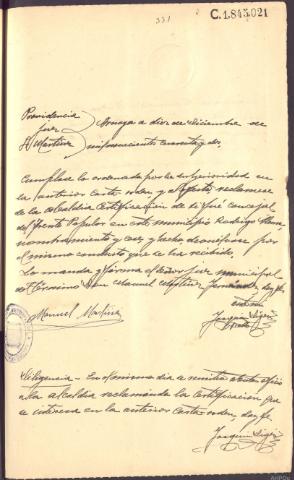 331
C.1.845.021
Providencia
Juez
Sr Martinez
Moraga a diez de diciembre de
mil novecientos cuarenta y dos.
Cumplase lo ordenado por la Superioridad en
la anterior carta orden, y al efecto reclamese
de la Alcaldia Certificación de si fué concejal
del Frente Popular en este municipio Rodrigo
nombramiento y cese y hecho devuelvase por
el mismo conducto que se ha recibido.
Lo manda y firma el Señor Juez municipal
de termino Don Manuel Martinez Fernandez, doy fe.
Manuel Martinez
Joaquin
Diligencia - En el mismo dia se remite atento oficio
a la alcaldia reclamando la certificación que
se interesa en la anterior carta orden, doy fe
Joaquin